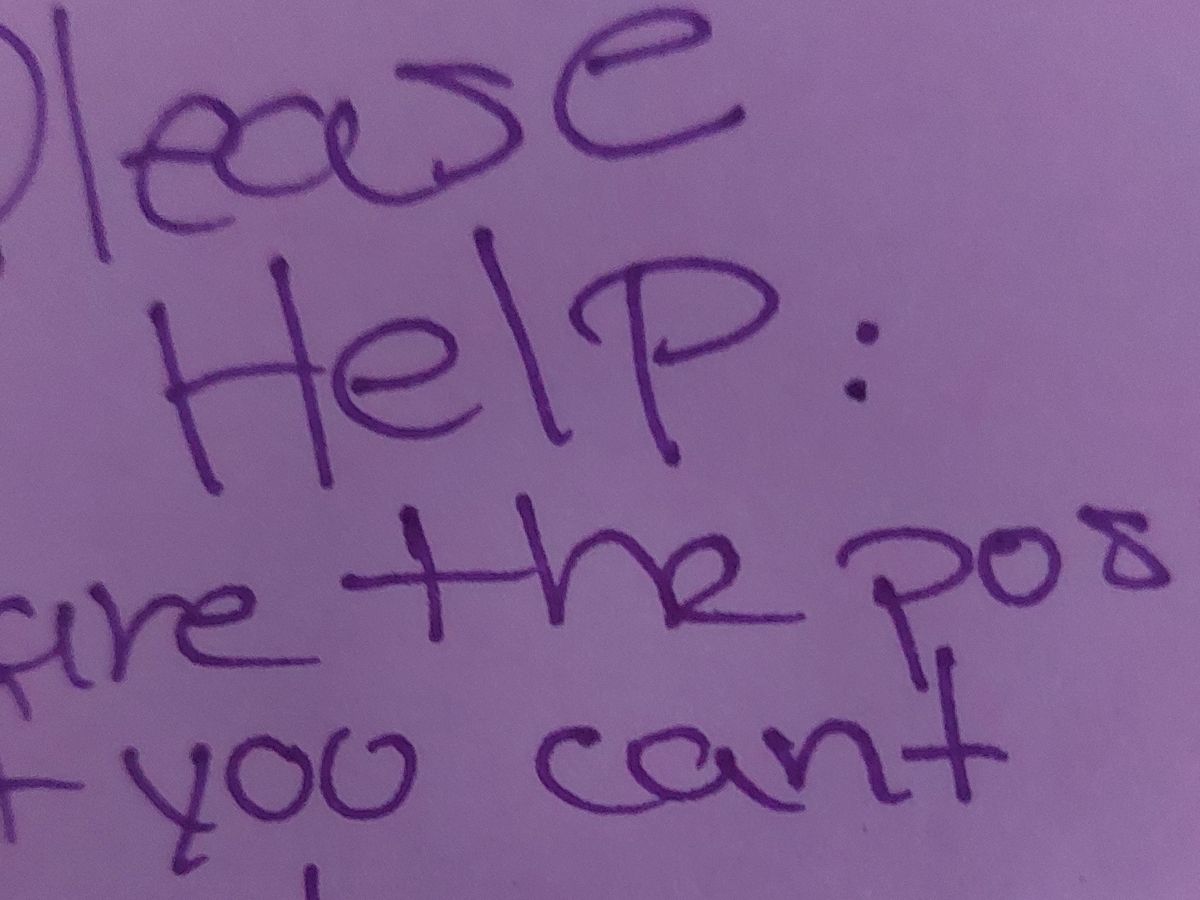 Please
Help:
are the pos
you cant